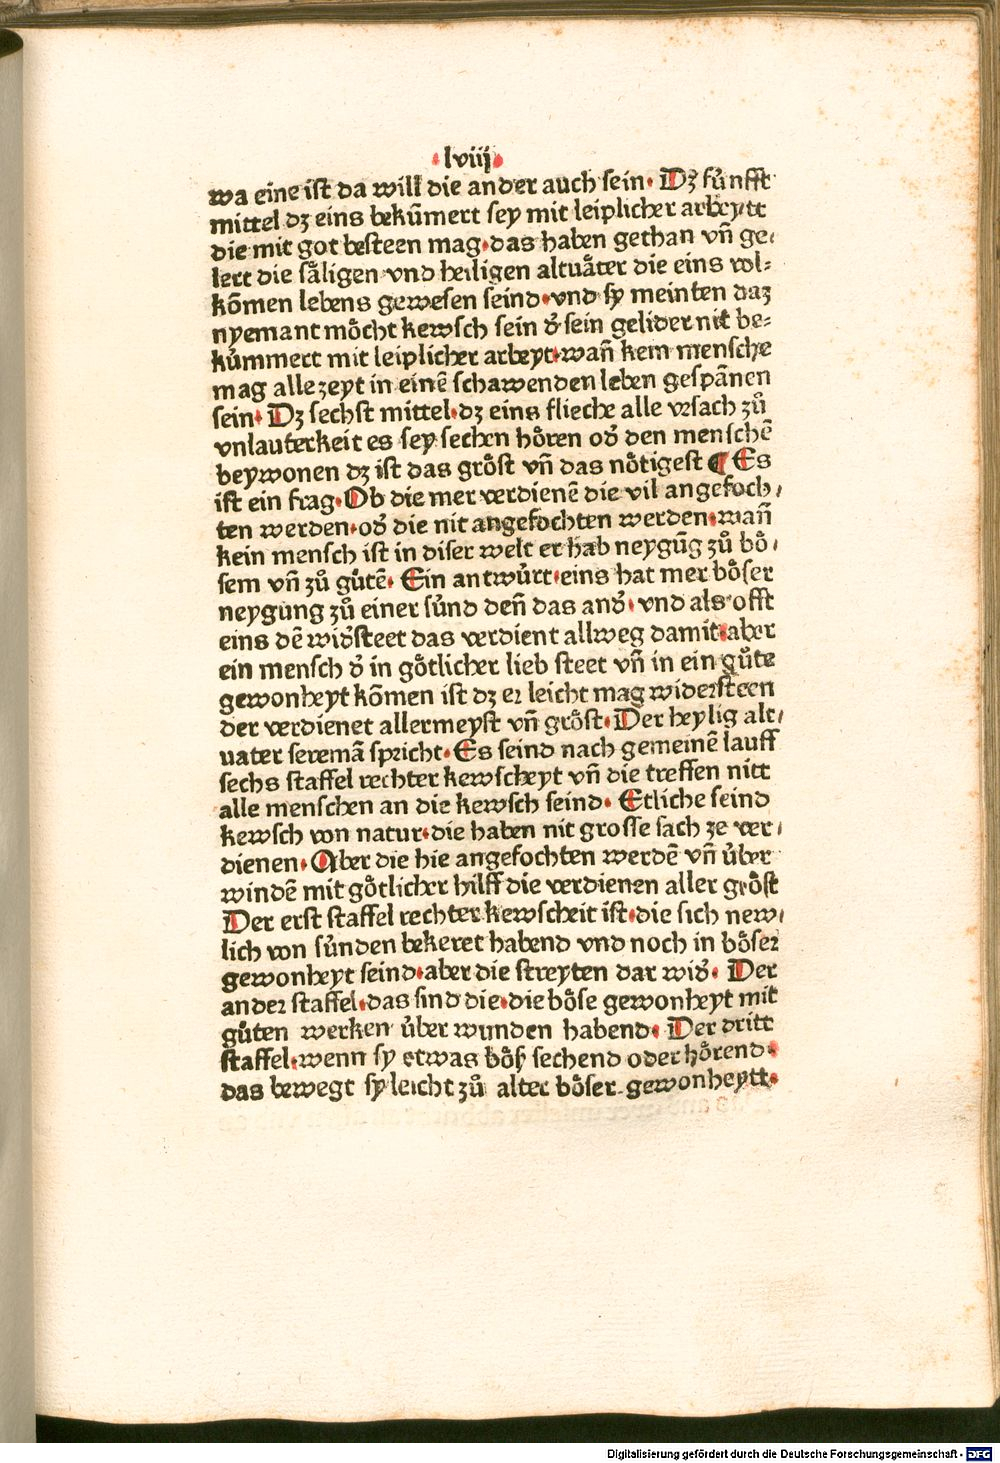 ·lviij·
wa eine ist da will die ander auch sein· Dʒ fu̍nfft
mittel dʒ eins beku̍mert sey mit leiplicher arbeytt
die mit got besteen mag·das haben gethan vn̄ ge/
lert die sa̍ligen vnd heiligen altua̍ter die eins vol⸗
kõmen lebens gewesen seind·vnd sy meinten daʒ
nyemant mo̍cht kewsch sein d̕ sein gelider nit be⸗
ku̍mmert mit leiplicher arbeyt·wan̄ kein mensche
mag alle zeyt in einē schawenden leben gespānen
sein· Dʒ sechst mittel·dʒ eins flieche alle vrsach zů
vnlauterkeit es sey sechen ho̍ren od̕ den menschē
beywonen dʒ ist das gro̍st vn̄ das no̍tigest ¶ Es
ist ein frag·Ob die mer verdienē die vil angefoch/
ten werden·od̕ die nit angefochten werden·wan̄
kein mensch ist in diser welt er hab neygūg zů bo̍/
sem vn̄ zů gůtē· Ein antwu̍rt·eins hat mer bo̍ser
neygung zů einer su̍nd den̄ das and̕· vnd als offt
eins dē wid̕steet das verdient allweg damit·aber
ein mensch d̕ in go̍tlicher lieb steet vn̄ in ein gůte
gewonheyt kõmen ist dʒ er leicht mag widersteen
der verdienet allermeyst vn̄ gro̍st· Der heylig alt/
uater seremā spricht· Es seind nach gemeinē lauff
sechs staffel rechter kewscheyt vn̄ die treffen nitt
alle menschen an die kewsch seind· Etliche seind
kewsch von natur·die haben nit grosse sach ze ver/
dienen· Aber die hie angefochten werdē vn̄ u̍ber
windē mit go̍tlicher hilff die verdienen aller gro̍st
Der erst staffel rechter kewscheit ist·die sich new/
lich von su̍nden bekeret habend vnd noch in bo̍ser
gewonheyt seind·aber die streyten dar wid̕· Der
ander staffel·das sind die·die bo̍se gewonheyt mit
gůten werken u̍ber wunden habend· Der dritt
staffel·wenn sy etwas bo̍ß sechend oder ho̍rend·
das bewegt sy leicht zů alter bo̍ser gewonheytt·
Digitalisierung gefördert durch die Deutsche Forschungsgemeinschaft - DFG